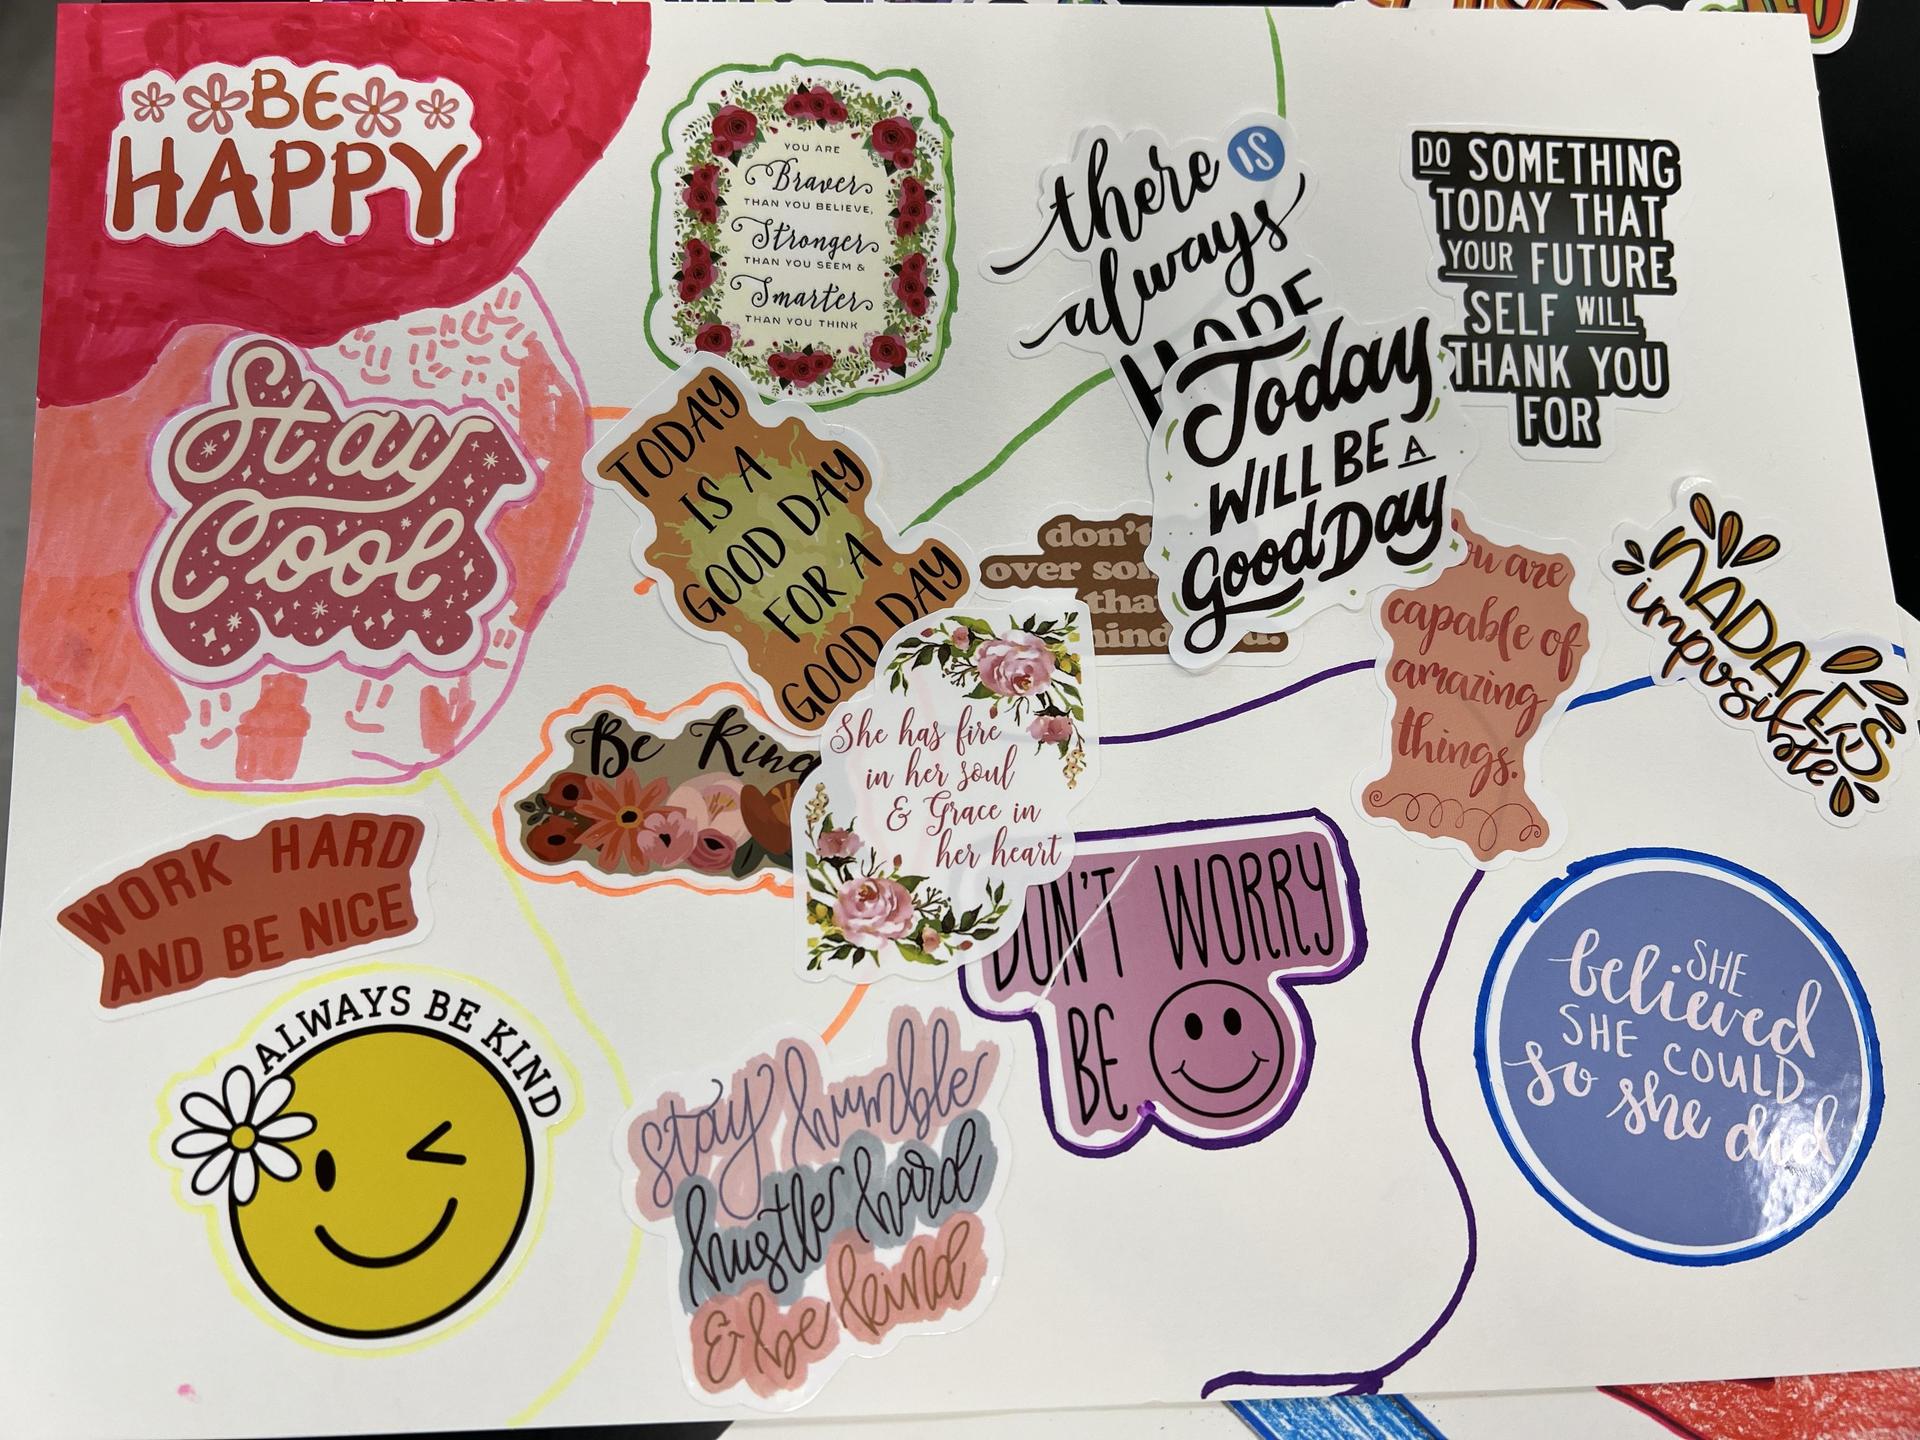 BE
HAPPY
YOU ARE
Braver
THAN YOU BELIEVE,
Stronger
THAN YOU SEEM &
Smarter
THAN YOU THINK
there IS
always
HOPE
DO SOMETHING
TODAY THAT
YOUR FUTURE
SELF WILL
THANK YOU
FOR
Stay
Cool
TODAY
IS A
GOOD DAY
FOR A
GOOD DAY
Today
WILL BE A
Good Day
don't
over
you are
capable of
amazing
things.
NADA ES
imposible
Be Kind
She has fire
in her soul
& Grace in
her heart
WORK HARD
AND BE NICE
DON'T WORRY
BE
SHE
believed
SHE COULD
so she did
ALWAYS BE KIND
stay humble
hustle hard
& be kind